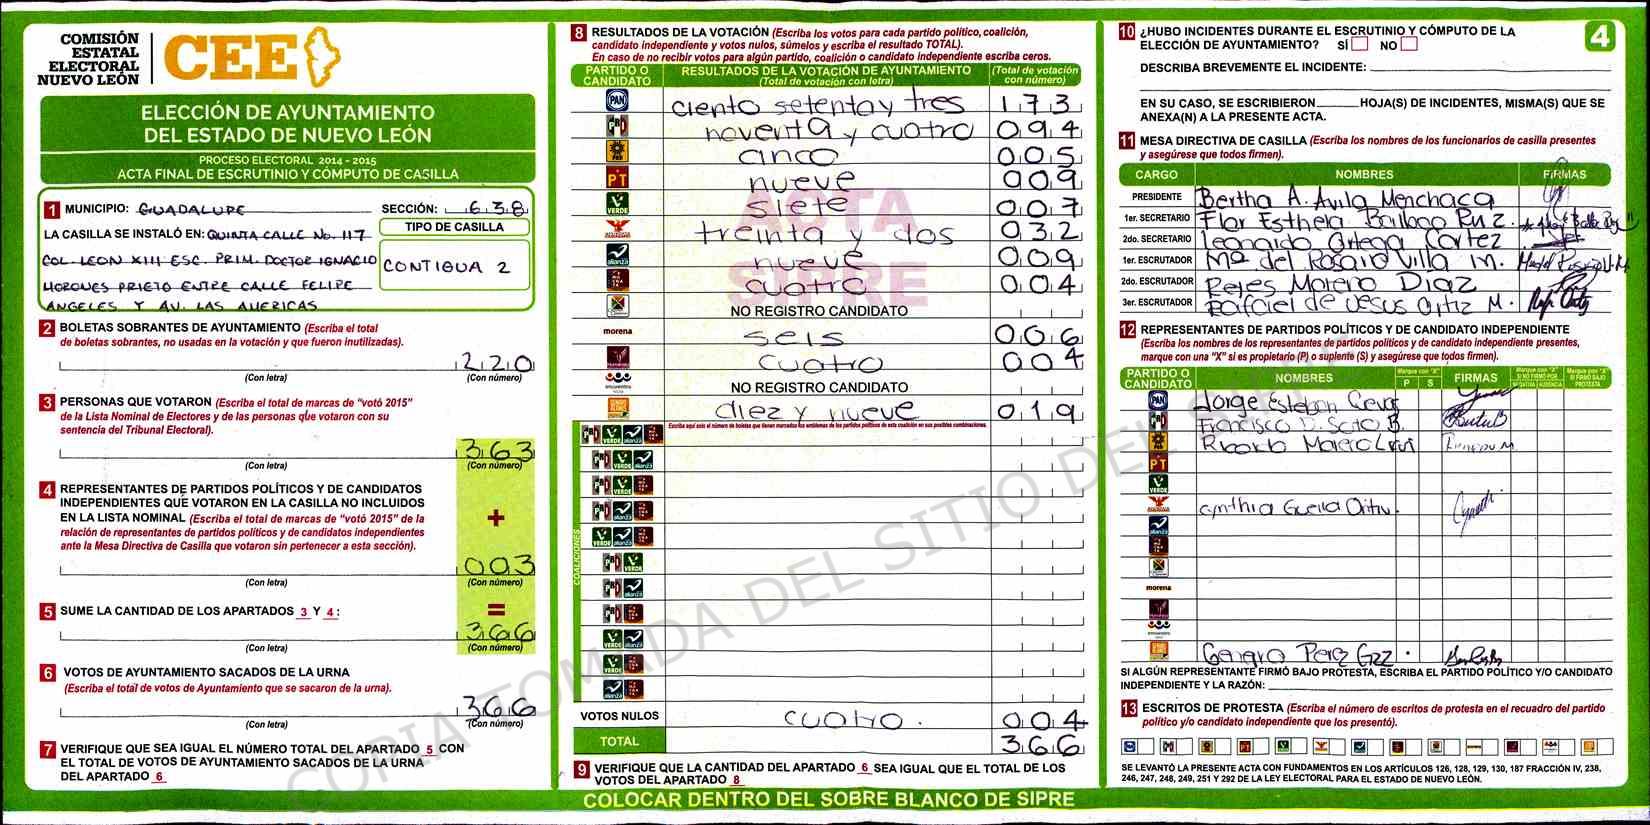 COMISIÓN
ESTATAL
ELECTORAL
NUEVO LEÓN
CEE
ELECCIÓN DE AYUNTAMIENTO
DEL ESTADO DE NUEVO LEÓN
PROCESO ELECTORAL 2014 - 2015
ACTA FINAL DE ESCRUTINIO Y CÓMPUTO DE CASILLA
1 MUNICIPIO: GUADALUPE SECCIÓN: 638
LA CASILLA SE INSTALÓ EN: QUINTA CALLE No. 117
COL. LEON XIII ESC. PRIM. DOCTOR IGNACIO
MORONES PRIETO ENTRE CALLE FELIPE
ANGELES Y AV. LAS AMERICAS
TIPO DE CASILLA
CONTIGUA 2
2 BOLETAS SOBRANTES DE AYUNTAMIENTO (Escriba el total
de boletas sobrantes, no usadas en la votación y que fueron inutilizadas).
220
(Con letra) (Con número)
3 PERSONAS QUE VOTARON (Escriba el total de marcas de "votó 2015"
de la Lista Nominal de Electores y de las personas que votaron con su
sentencia del Tribunal Electoral).
363
(Con letra) (Con número)
4 REPRESENTANTES DE PARTIDOS POLÍTICOS Y DE CANDIDATOS
INDEPENDIENTES QUE VOTARON EN LA CASILLA NO INCLUIDOS
EN LA LISTA NOMINAL (Escriba el total de marcas de "votó 2015" de la
relación de representantes de partidos políticos y de candidatos independientes
ante la Mesa Directiva de Casilla que votaron sin pertenecer a esta sección).
+
003
(Con letra) (Con número)
5 SUME LA CANTIDAD DE LOS APARTADOS 3 Y 4 :
=
366
(Con letra) (Con número)
6 VOTOS DE AYUNTAMIENTO SACADOS DE LA URNA
(Escriba el total de votos de Ayuntamiento que se sacaron de la urna).
366
(Con letra) (Con número)
7 VERIFIQUE QUE SEA IGUAL EL NÚMERO TOTAL DEL APARTADO 5 CON
EL TOTAL DE VOTOS DE AYUNTAMIENTO SACADOS DE LA URNA
DEL APARTADO 6
8 RESULTADOS DE LA VOTACIÓN (Escriba los votos para cada partido político, coalición,
candidato independiente y votos nulos, súmelos y escriba el resultado TOTAL).
En caso de no recibir votos para algún partido, coalición o candidato independiente escriba ceros.
PARTIDO O CANDIDATO RESULTADOS DE LA VOTACIÓN DE AYUNTAMIENTO (Total de votación con letra) (Total de votación con número)
PAN ciento setenta y tres 173
PRD noventa y cuatro 094
cinco 005
PT nueve 009
VERDE siete 007
treinta y dos 032
alianza nueve 009
cuatro 004
NO REGISTRO CANDIDATO
morena seis 006
cuatro 004
encuentro NO REGISTRO CANDIDATO
diez y nueve 019
Escriba aquí solo el número de boletas que tienen marcados los emblemas de los partidos políticos de esta coalición en sus posibles combinaciones.
COALICIONES
VOTOS NULOS cuatro. 004
TOTAL 366
9 VERIFIQUE QUE LA CANTIDAD DEL APARTADO 6 SEA IGUAL QUE EL TOTAL DE LOS
VOTOS DEL APARTADO 8
COLOCAR DENTRO DEL SOBRE BLANCO DE SIPRE
ACTA
SIPRE
COPIA TOMADA DEL SITIO DEL SIPRE
4
10 ¿HUBO INCIDENTES DURANTE EL ESCRUTINIO Y CÓMPUTO DE LA
ELECCIÓN DE AYUNTAMIENTO? SÍ NO
DESCRIBA BREVEMENTE EL INCIDENTE:
EN SU CASO, SE ESCRIBIERON HOJA(S) DE INCIDENTES, MISMA(S) QUE SE
ANEXA(N) A LA PRESENTE ACTA.
11 MESA DIRECTIVA DE CASILLA (Escriba los nombres de los funcionarios de casilla presentes
y asegúrese que todos firmen).
CARGO NOMBRES FIRMAS
PRESIDENTE Bertha A. Avila Menchaca
1er. SECRETARIO Flor Esthela Ruz.
2do. SECRETARIO Leonardo Ortega Cortez
1er. ESCRUTADOR Ma del Rosario Villa M.
2do. ESCRUTADOR Reyes Moreno Diaz
3er. ESCRUTADOR Rafael de Jesus Ortiz M.
12 REPRESENTANTES DE PARTIDOS POLÍTICOS Y DE CANDIDATO INDEPENDIENTE
(Escriba los nombres de los representantes de partidos políticos y de candidato independiente presentes,
marque con una "X" si es propietario (P) o suplente (S) y asegúrese que todos firmen).
PARTIDO O CANDIDATO NOMBRES Marque con "X" P S FIRMAS Marque con "X" SI NO FIRMÓ POR NEGATIVA AUSENCIA Marque con "X" SI FIRMÓ BAJO PROTESTA
PAN Jorge Esteban
PRD Francisco D. Soto B.
Ricardo
PT
VERDE
Cynthia
morena
encuentro
Genaro Perez Gzz.
SI ALGÚN REPRESENTANTE FIRMÓ BAJO PROTESTA, ESCRIBA EL PARTIDO POLÍTICO Y/O CANDIDATO
INDEPENDIENTE Y LA RAZÓN:
13 ESCRITOS DE PROTESTA (Escriba el número de escritos de protesta en el recuadro del partido
político y/o candidato independiente que los presentó).
SE LEVANTÓ LA PRESENTE ACTA CON FUNDAMENTOS EN LOS ARTÍCULOS 126, 128, 129, 130, 187 FRACCIÓN IV, 238,
246, 247, 248, 249, 251 Y 292 DE LA LEY ELECTORAL PARA EL ESTADO DE NUEVO LEÓN.